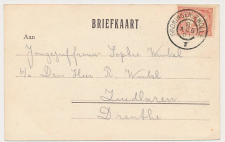 BRIEFKAART
Aan
Jongejuffrouw Sophie Winkel
p/a Den Heer R. Winkel
Zuidlaren
Drenthe